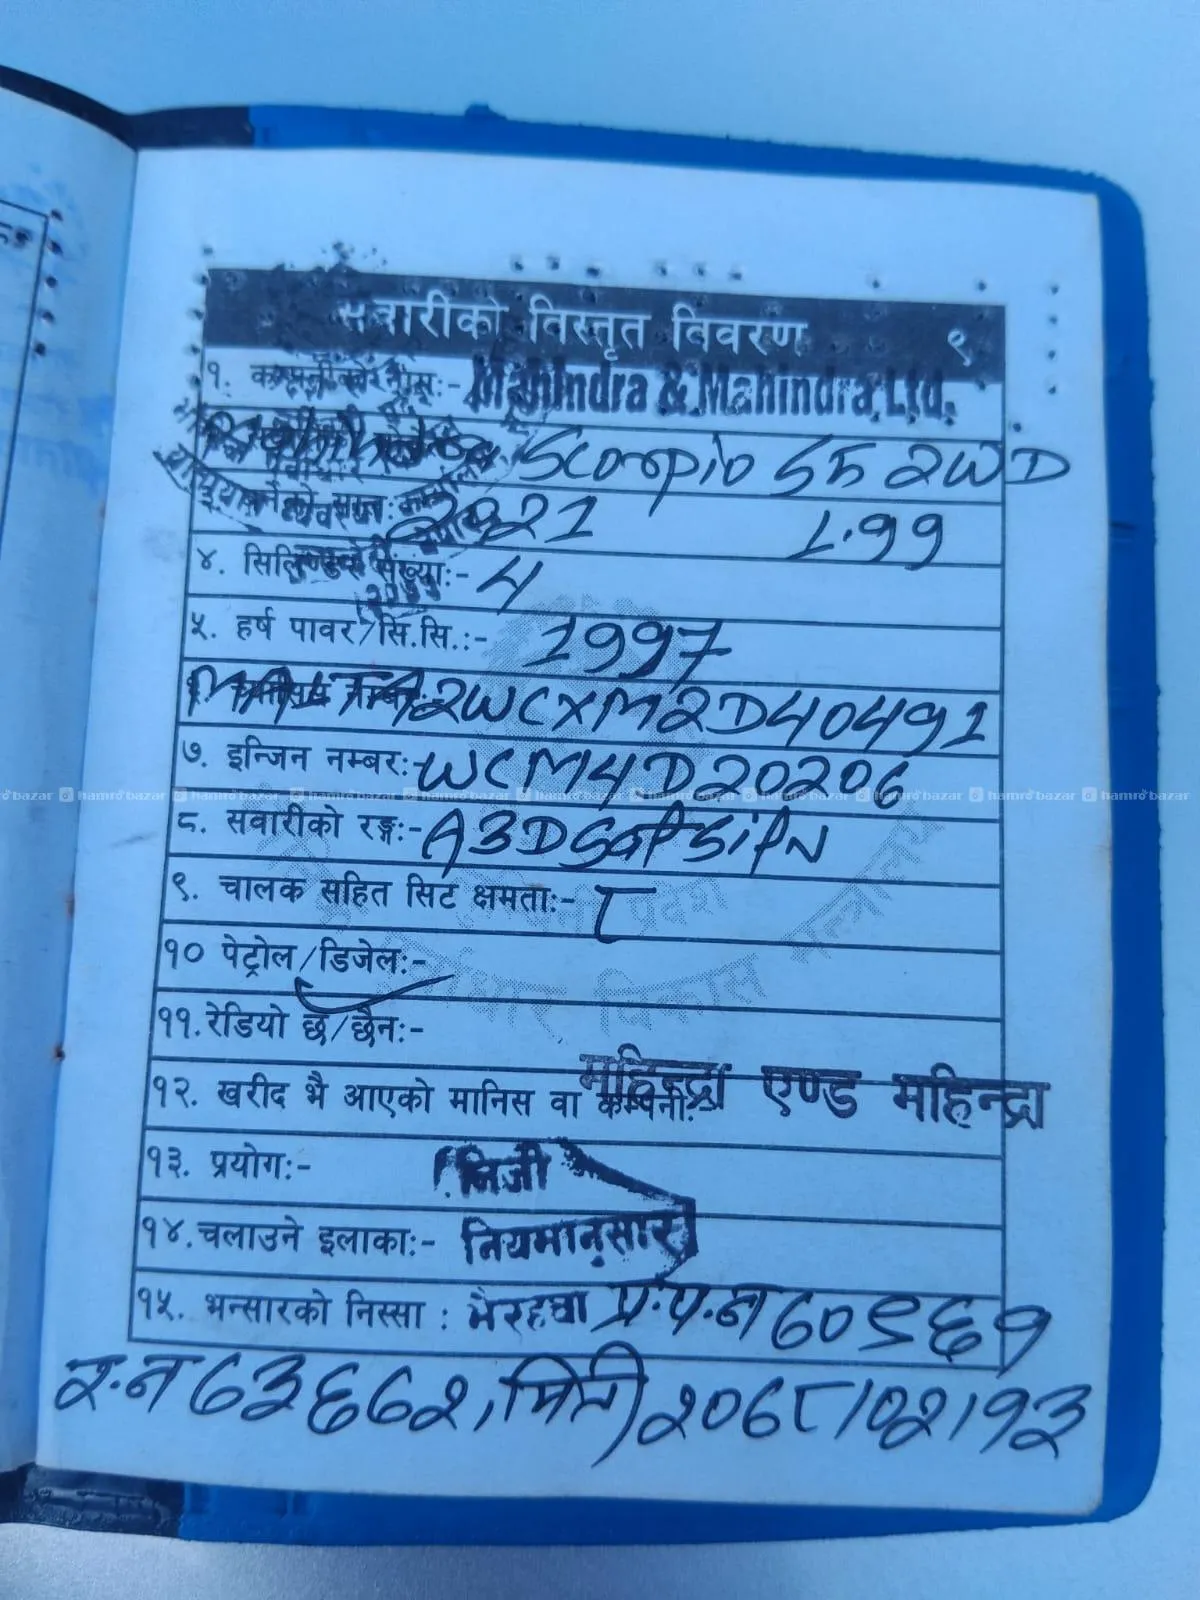 सवारीको विस्तृत विवरण ९
१. Mahindra & Mahindra Ltd.
Scorpio S5 2WD
2021 1.99
४. सिलिण्डर संख्याः- 4
५. हर्ष पावर/सि.सि.:- 1997
MA1TA2WCXM2D40491
७. इन्जिन नम्बरः- WCM4D20206
८. सवारीको रङ्गः-
९. चालक सहित सिट क्षमताः- ८
१० पेट्रोल/डिजेलः-
११. रेडियो छ/छैनः-
महिन्द्रा एण्ड महिन्द्रा
१२. खरीद भै आएको मानिस वा कम्पनीः-
१३. प्रयोगः- निजी
१४. चलाउने इलाकाः- नियमानुसार
१५. भन्सारको निस्सा : भैरहवा प्र.प.न ७०९६१
र.न ७३६७२, मिती २०७८/०२/१३
hamrobazar hamrobazar hamrobazar hamrobazar hamrobazar hamrobazar hamrobazar hamrobazar hamrobazar hamrobazar